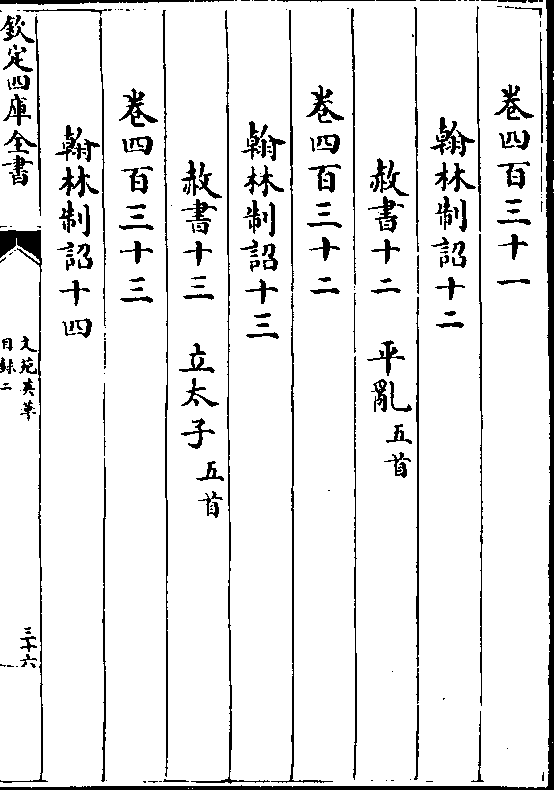 卷四百三十一
翰林制詔十二
赦書十二 平亂五首
卷四百三十二
翰林制詔十三
赦書十三 立太子五首
卷四百三十三
翰林制詔十四
欽定四庫全書
文苑英華
目録二
三十六